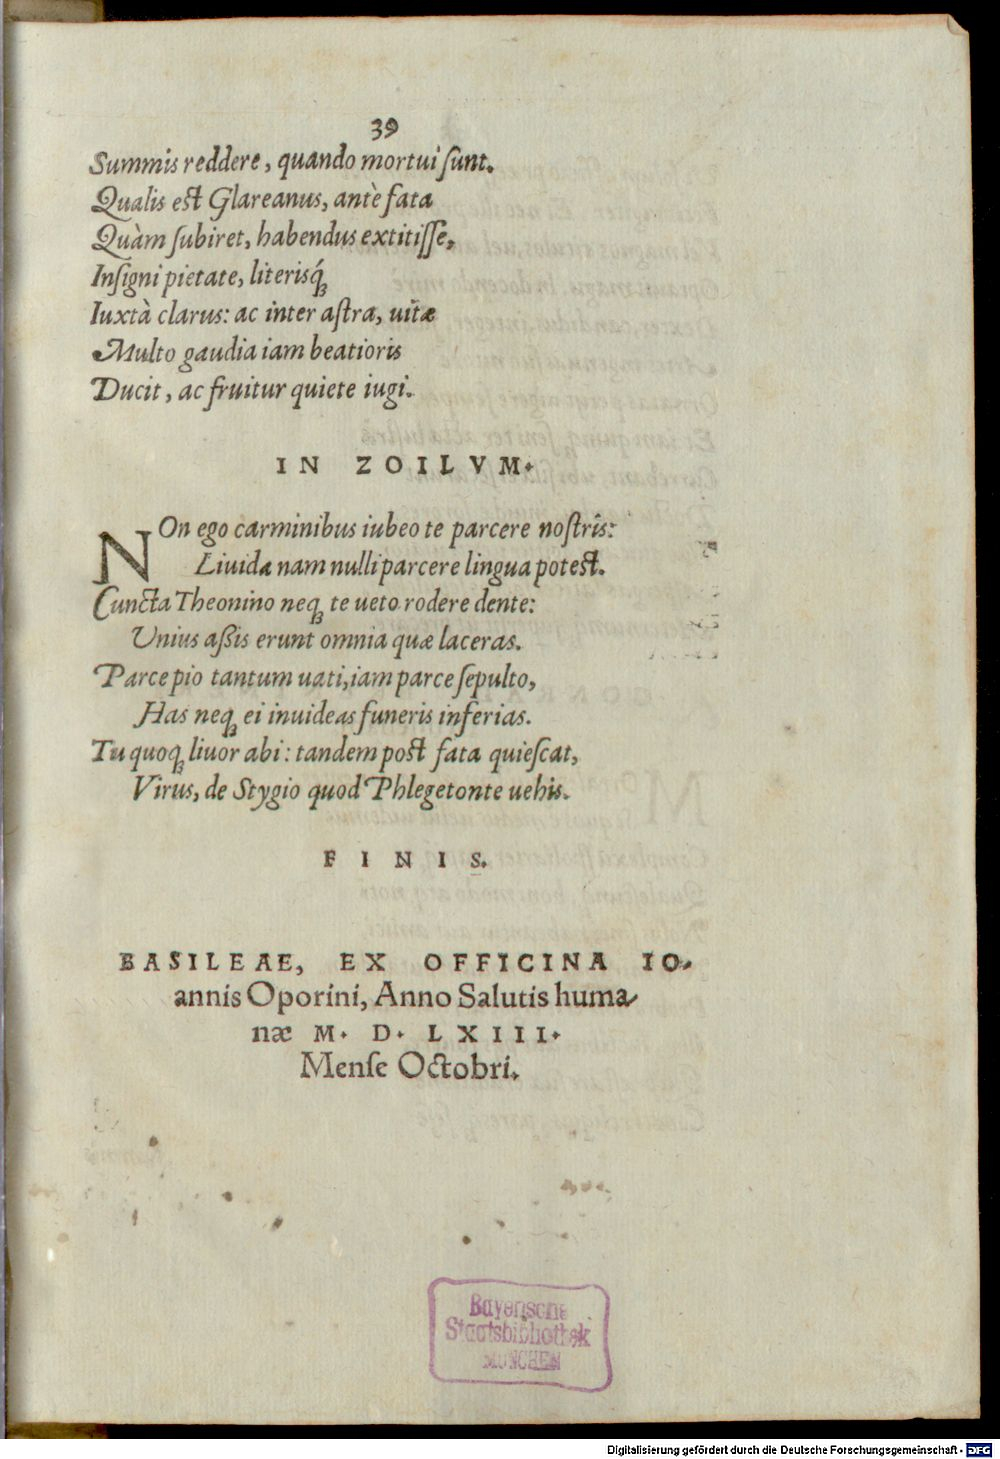 39
Summis reddere, quando mortui ſunt.
Qualis est Glareanus, antè fata
Quàm ſubiret, habendus extitiſſe,
Inſigni pietate, literisq́;
Iuxtà clarus: ac inter aſtra, uitæ
Multo gaudia iam beatioris
Ducit, ac fruitur quiete iugi.
IN ZOILVM.
NOn ego carminibus iubeo te parcere noſtris:
Liuida nam nulli parcere lingua potest.
Cuncta Theonino neq; te ueto rodere dente:
Unius aßis erunt omnia quæ laceras.
Parce pio tantum uati, iam parce ſepulto,
Has neq; ei inuideas funeris inferias.
Tu quoq; liuor abi: tandem post fata quieſcat,
Virus, de Stygio quod Phlegetonte uehis.
FINIS.
BASILEAE, EX OFFICINA IO-
annis Oporini, Anno Salutis huma-
næ M. D. LXIII.
Menſe Octobri.
Bayerische
Staatsbibliothek
MÜNCHEN
Digitalisierung gefördert durch die Deutsche Forschungsgemeinschaft - DFG